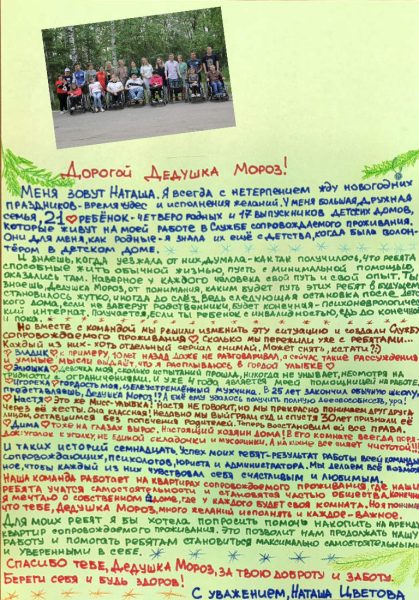 Дорогой Дедушка Мороз!
Меня зовут Наташа. Я всегда с нетерпением жду новогодних
праздников-время чудес и исполнения желаний. У меня большая, дружная
семья, 21 ребёнок-четверо родных и 17 выпускников детских домов,
которые живут на моей работе в Службе сопровождаемого проживания.
Они для меня, как родные-я знала их ещё с детства, когда была волон-
тёром в детском доме.
И знаешь, когда уезжала от них, думала-как так получилось, что ребята
способные жить обычной жизнью, пусть с минимальной помощью,
оказались там. Наверное у каждого человека свой путь и свой опыт. Ты
знаешь, Дедушка Мороз, от понимания, каким будет путь этих ребят в будущем
становилось жутко, иногда до слёз. Ведь следующая остановка после детс-
кого дома, если не заберут родственники, будет конечная-психоневрологичес-
кий интернат. Получается, если ты ребёнок с инвалидностью,
Но вместе с командой мы решили изменить эту ситуацию и создали Службу
сопровождаемого проживания Сколько мы пережили уже с ребятами...
Каждый из них-хоть отдельный сериал снимай. Может снять, кстати?))
Владик-к примеру, 10 лет назад даже не разговаривал, а сейчас такие рассуждения
и умные мысли выдаёт, что я расплываюсь в гордой улыбке
девочка моя, сколько испытаний прошла, никогда не унывает, несмотря на
трудности и ограничениями, и уже 4 года является моей помощницей на работе
гордость моя, целеустремлённый мужчина. В 25 лет закончил обычную школу,
представляешь, Дедушка Мороз!? А ещё ему удалось вернуть полную дееспособность, ура!
Настя Это же Мисс-улыбка! Настя не говорит, но мы прекрасно понимаем друг друга
через её жесты. Она классная! Недавно мы выиграли суд и спустя 30 лет признали её
лицом, оставшимся без попечения родителей. Теперь восстановим ей все права.
Дима Тоже на глазах вырос, настоящий хозяин дома! В его комнате всегда поря-
док: уголок к уголку, не единой складочки и мусоринки. А на кухне всё сияет чистотой!!!
И таких историй семнадцать. Успех моих ребят-результат работы всей команды:
сопровождающих, психологов, юриста и администратора. Мы делаем всё возмож-
ное, чтобы каждый из них чувствовал себя счастливым и любимым.
Наша команда работает на квартирах сопровождаемого проживания, где наши
ребята учатся самостоятельности и становятся частью общества. Конечно,
я мечтаю о собственном доме, где у каждого будет своя комната. Но я понимаю,
что тебе, Дедушка Мороз, много желаний исполнять и каждое-важное.
Для моих ребят я бы хотела попросить помочь накопить на аренду
квартир сопровождаемого проживания. Это позволит нам продолжать нашу
работу и помогать ребятам становиться максимально самостоятельными
и уверенными в себе.
Спасибо тебе, Дедушка Мороз, за твою доброту и заботу.
Береги себя и будь здоров!
С уважением, Наташа Цветова